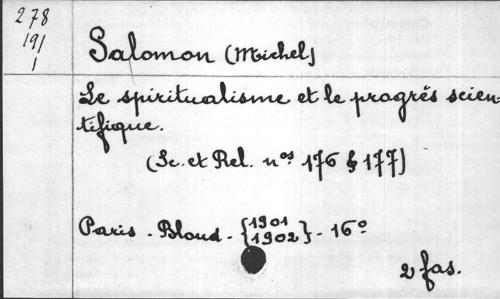 278
191
1
Salomon (Michel)
Le spiritualisme et le progrès scien-
tifique.
(Sc. et Rel. nos 176 & 177)
Paris - Bloud - {1901
1902} - 16o
2 fas.